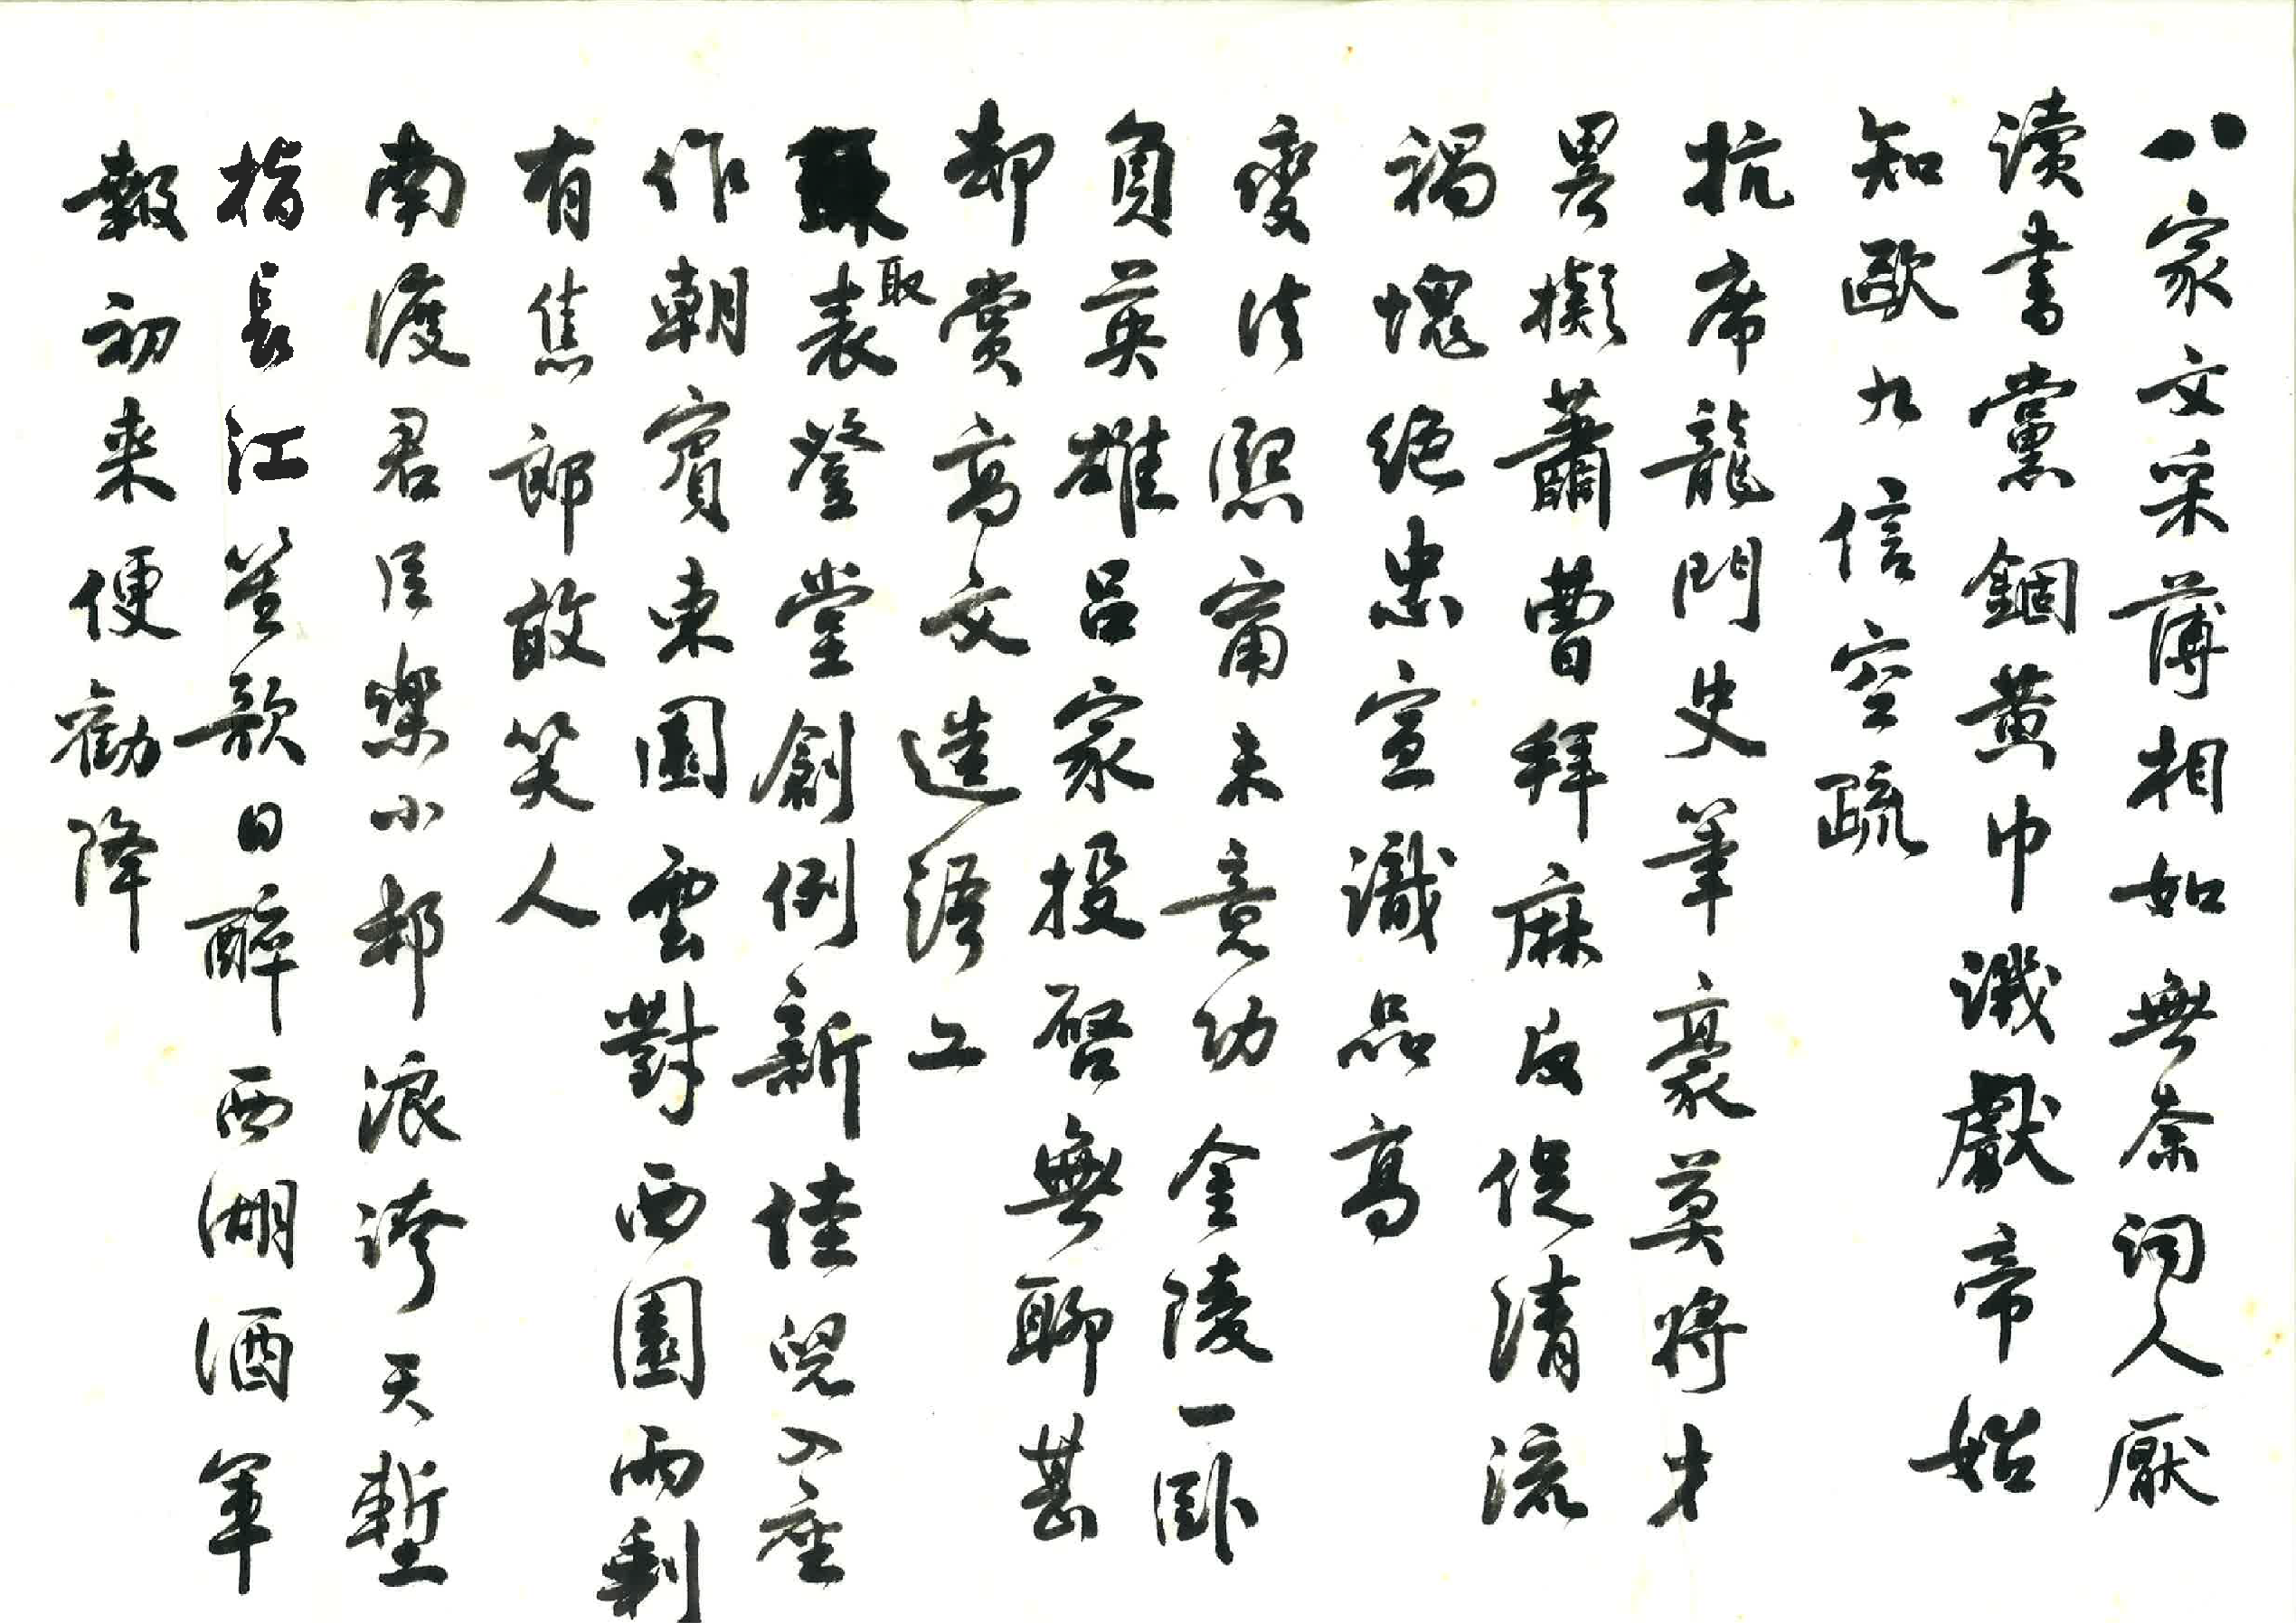 八家文采薄相如無奈詞人厭
讀書黨錮黃巾譏獻帝始
知歐九信空疏
抗席龍門史筆豪莫將才
畧擬蕭曹拜麻反促清流
禍愧絕忠宣識品高
變法熙甯未竟功金陵一臥
負英雄呂家投啓無聊甚
却賞高文造語工
取表登堂創例新佳兒入座
作朝賓東園雲對西園雨剩
有焦郎敢笑人
南渡君臣樂小邦浪誇天塹
指長江笙歌日醉西湖酒軍
報初来便勸降